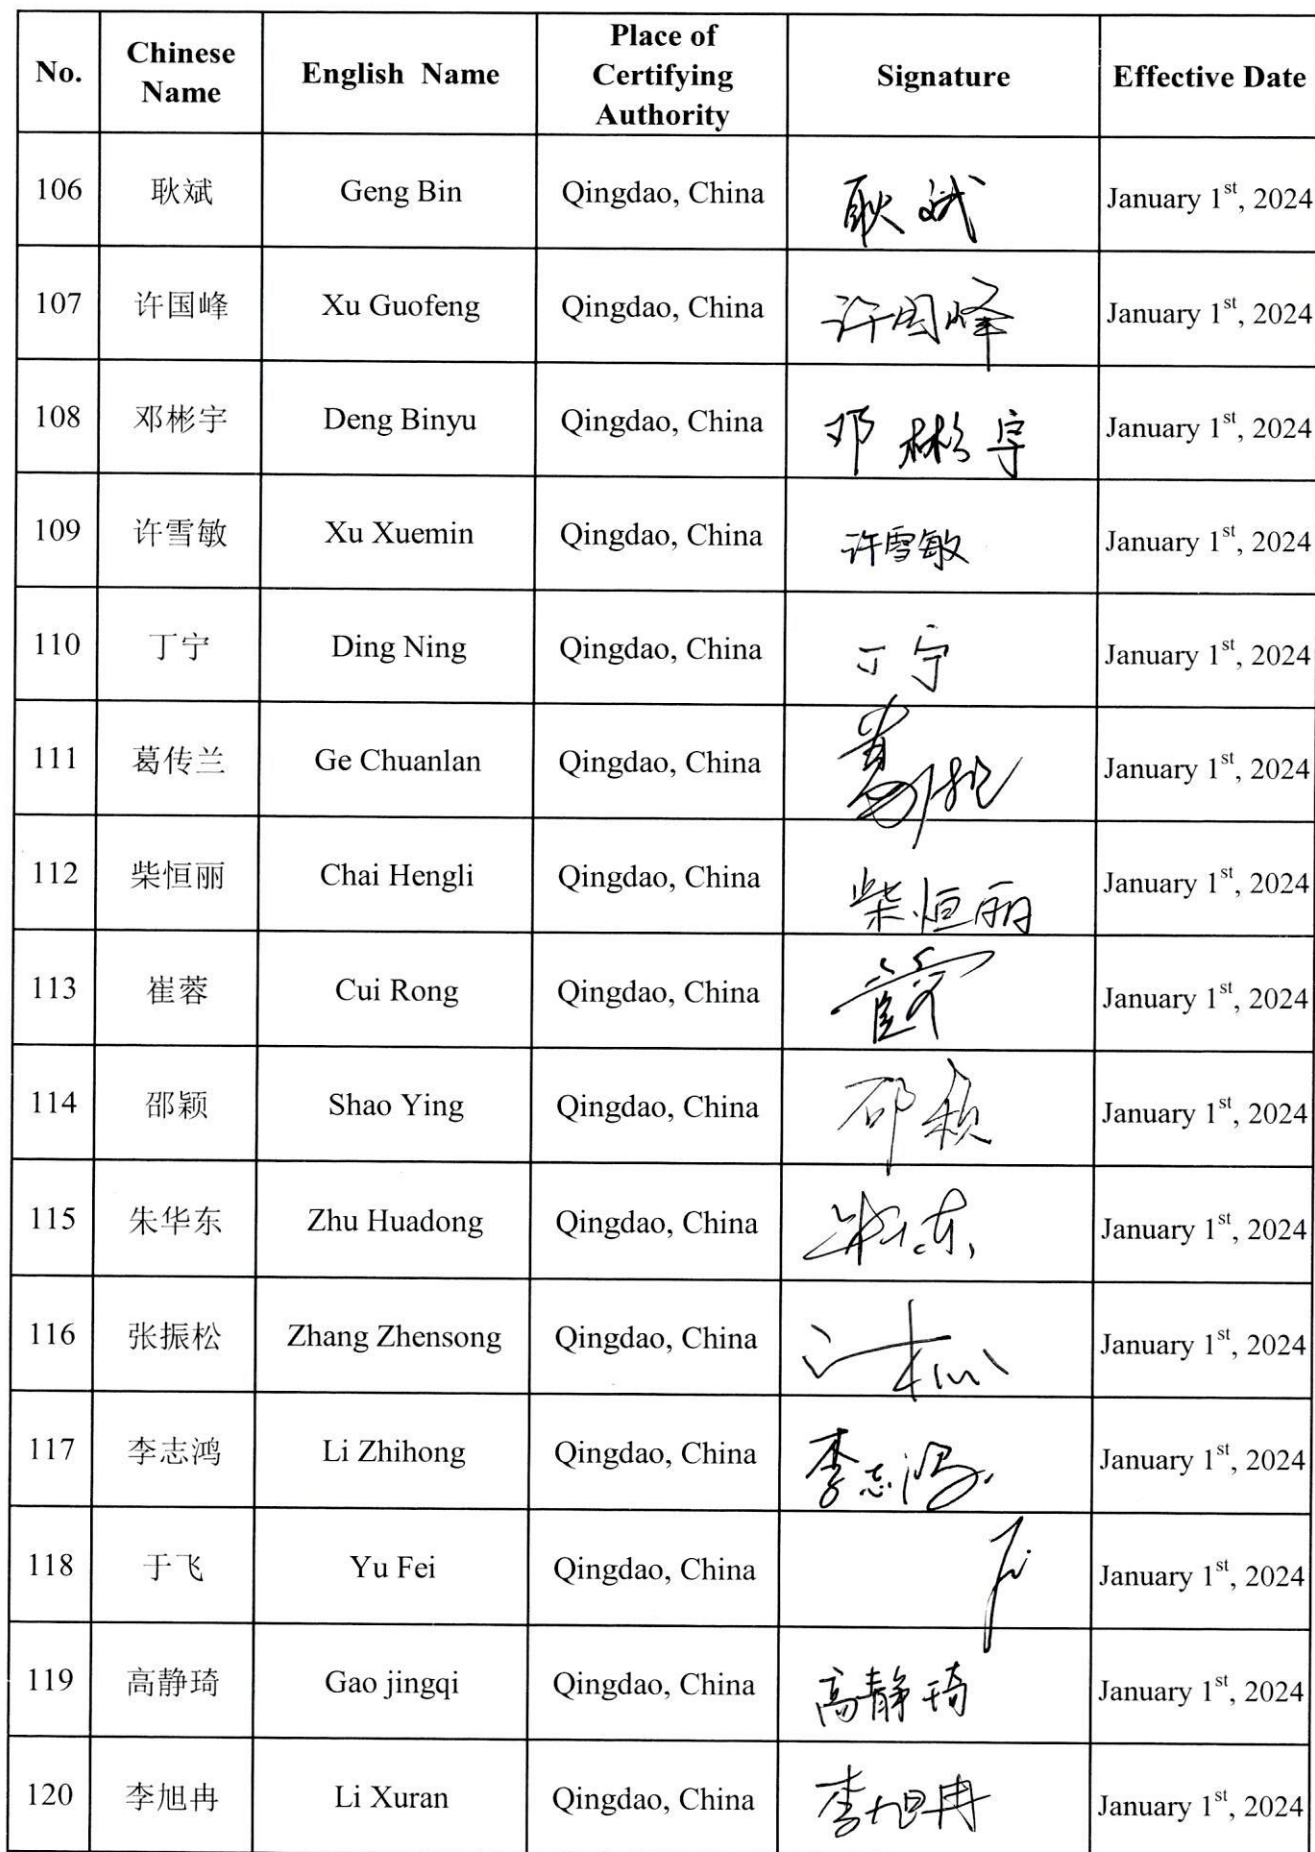 No. Chinese Name English Name Place of Certifying Authority Signature Effective Date
106 耿斌 Geng Bin Qingdao, China 耿斌 January 1st, 2024
107 许国峰 Xu Guofeng Qingdao, China 许国峰 January 1st, 2024
108 邓彬宇 Deng Binyu Qingdao, China 邓彬宇 January 1st, 2024
109 许雪敏 Xu Xuemin Qingdao, China 许雪敏 January 1st, 2024
110 丁宁 Ding Ning Qingdao, China 丁宁 January 1st, 2024
111 葛传兰 Ge Chuanlan Qingdao, China January 1st, 2024
112 柴恒丽 Chai Hengli Qingdao, China 柴恒丽 January 1st, 2024
113 崔蓉 Cui Rong Qingdao, China January 1st, 2024
114 邵颖 Shao Ying Qingdao, China 邵颖 January 1st, 2024
115 朱华东 Zhu Huadong Qingdao, China January 1st, 2024
116 张振松 Zhang Zhensong Qingdao, China January 1st, 2024
117 李志鸿 Li Zhihong Qingdao, China 李志鸿 January 1st, 2024
118 于飞 Yu Fei Qingdao, China January 1st, 2024
119 高静琦 Gao jingqi Qingdao, China 高静琦 January 1st, 2024
120 李旭冉 Li Xuran Qingdao, China 李旭冉 January 1st, 2024